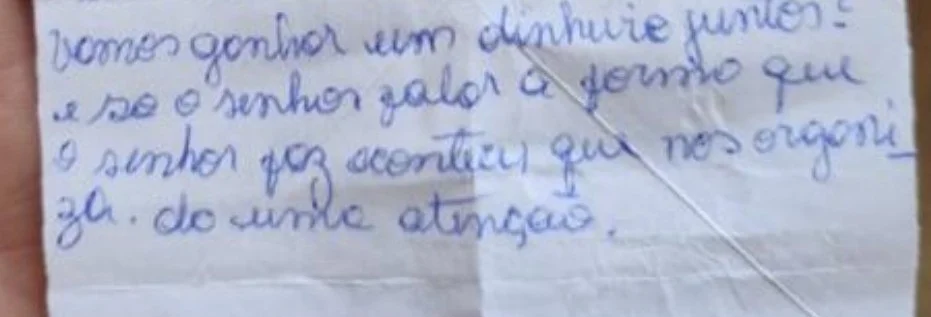 vamos ganhar um dinhuie juntos?
e so o senhor falar a forma que
o senhor faz acontecer que nos organi_
za. da uma atenção.